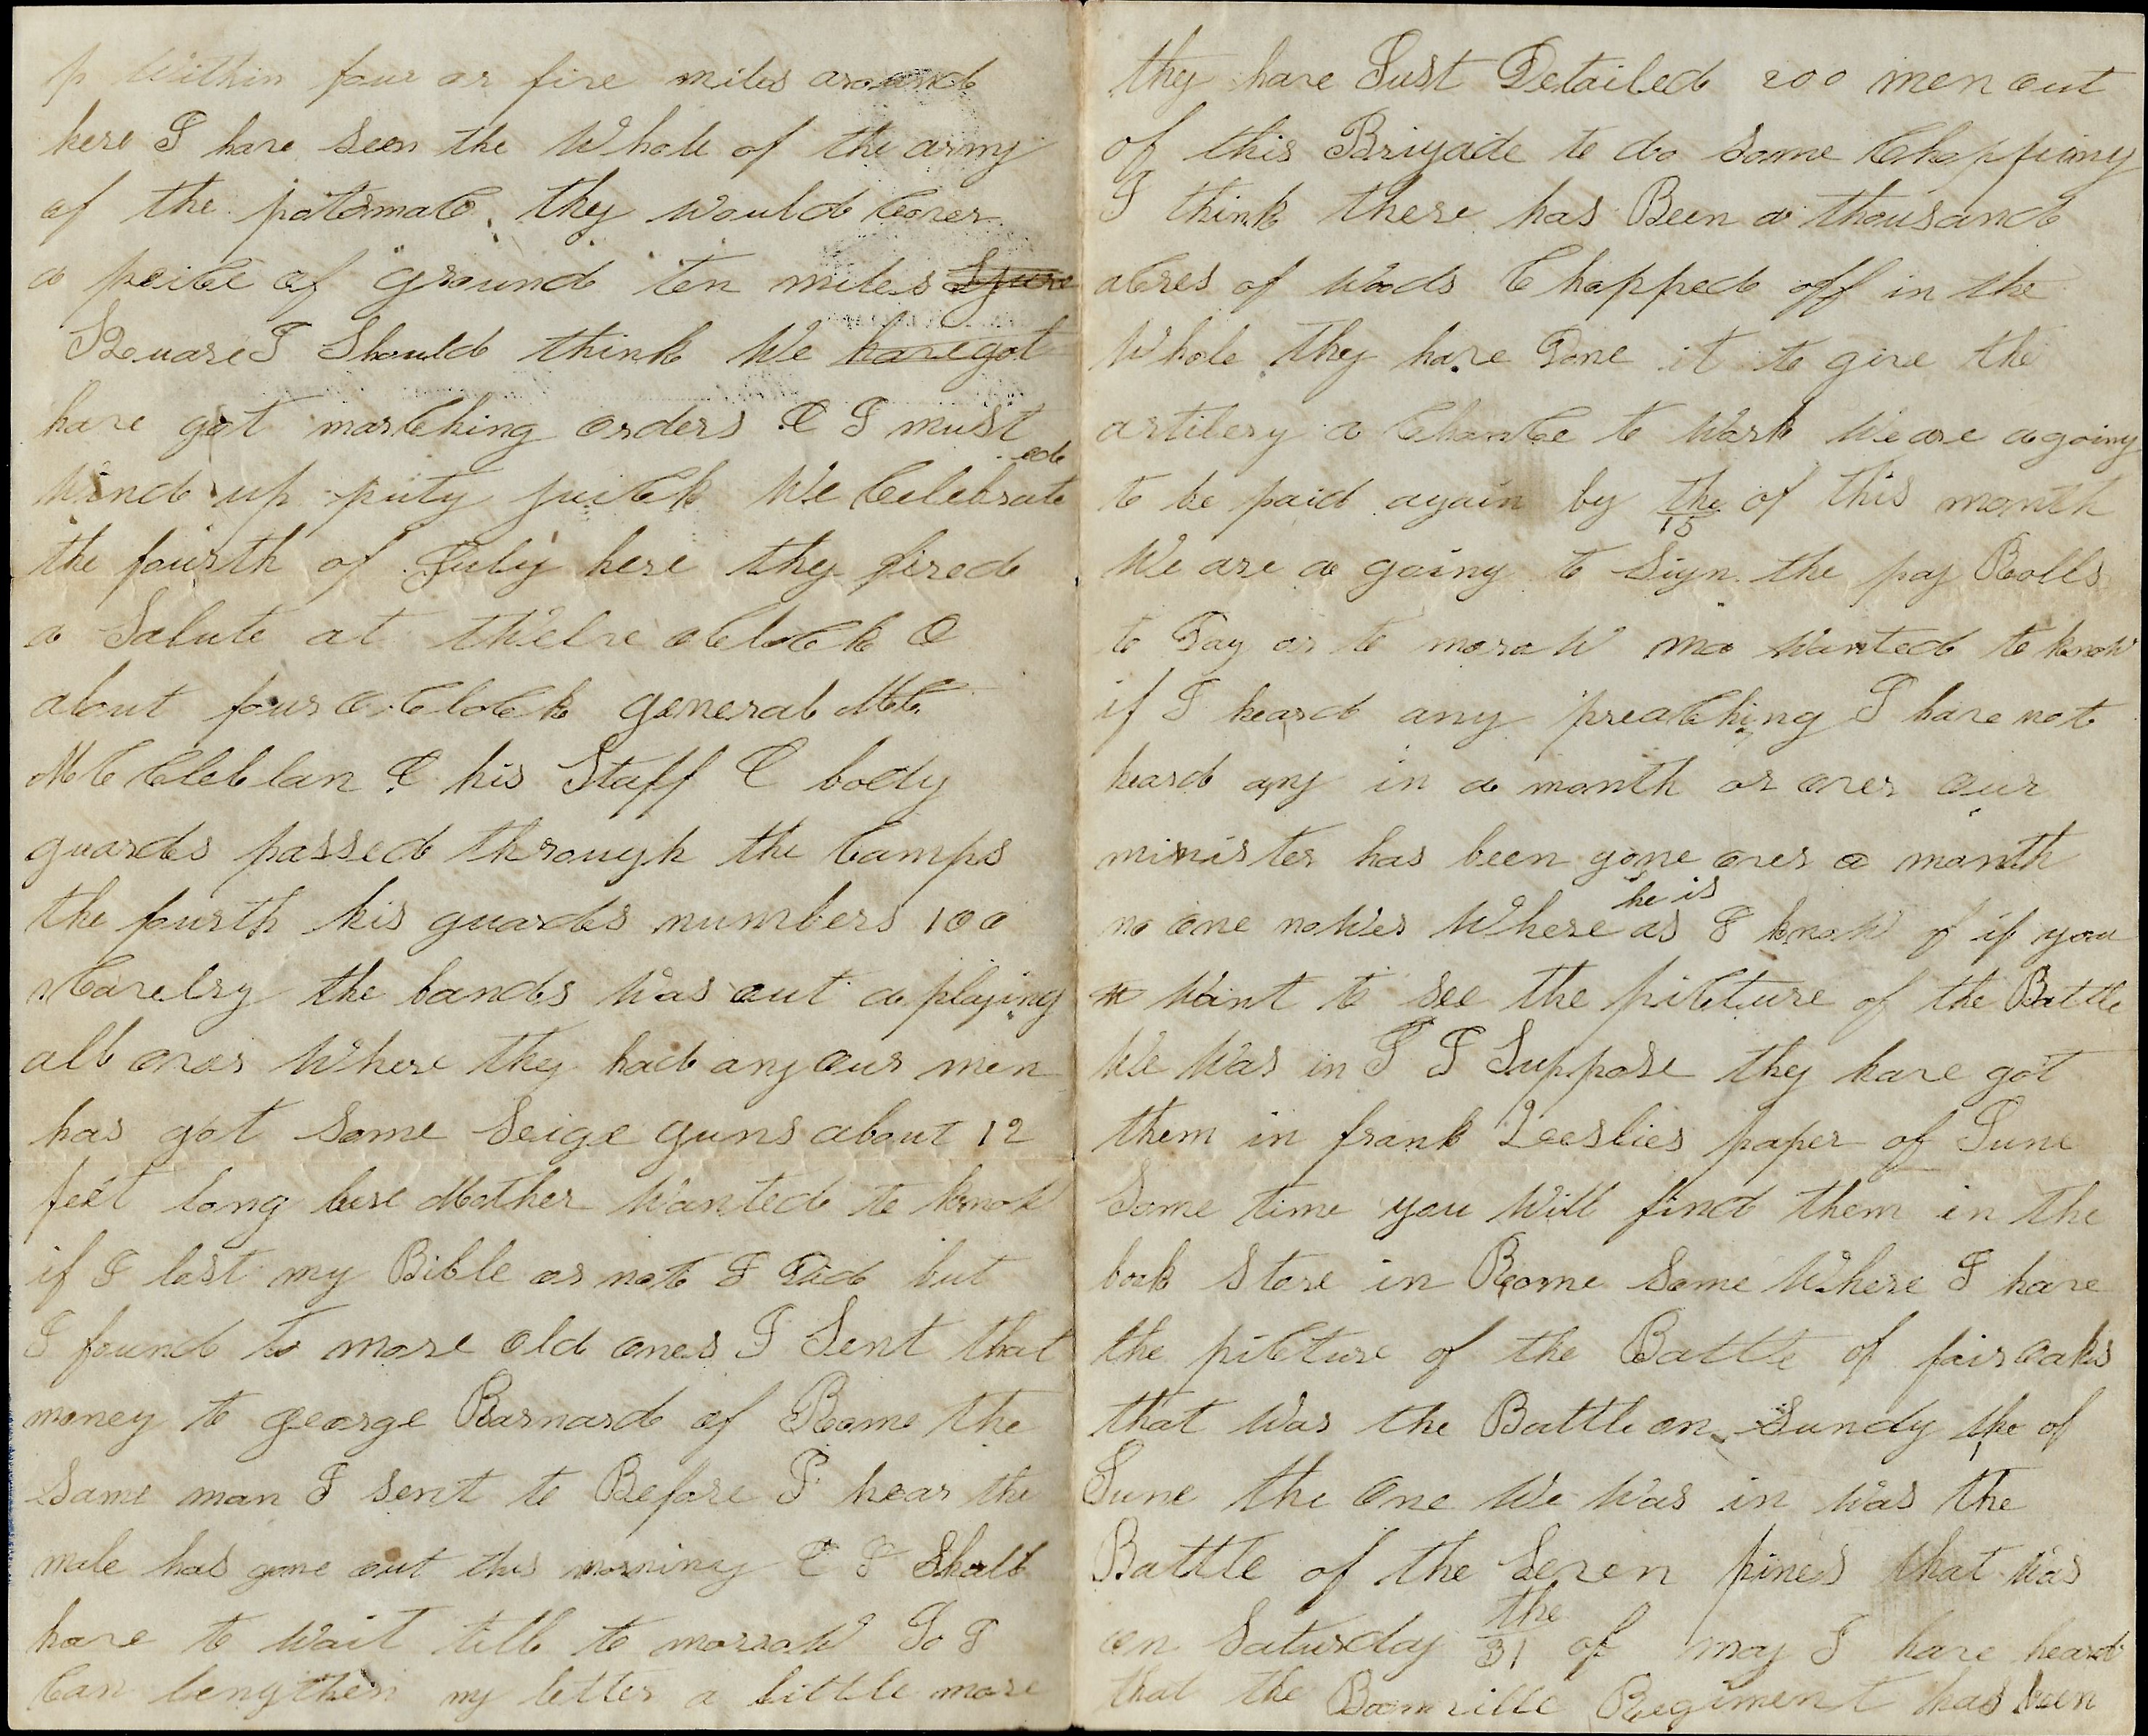 p Within four or five miles around
here I have Seen the Whole of the army
of the potomac, they would Cover
a peice of ground ten miles Squre
Square I Should think We have got
have got marching orders & I must
Wind up puty quick We Celebrated
the fourth of July here they fired
a Salute at twelve oClock &
about four o,Clock general Mc
Mc Clellan & his Staff & body
guards passed through the Camps
the fourth his guards numbers 100
Cavelry the bands Was out a playing
all over Where they had any Our men
has got Some Seige guns about 12
feet long here Mother Wanted to know
if I lost my Bible or not I Did but
I found to more old ones I Sent that
money to george Barnard of Rome the
Same man I sent to Before I hear the
male has gone out this morning & I Shall
have to Wait till to morrow So I
Can lengthen my letter a little more
they have Just Detailed 200 men out
of this Brigade to do Some Chopping
I think there has Been a thousand
aCres of Woods Chopped off in the
Whole They have Done it to give the
artilery a Chance to Work We are agoing
to be paid again by the 15 of this month
We are a going to Sign the pay Rolls
to Day or to moroW ma Wanted to know
if I heard any preaching I have not
heard any in a month or over Our
minister has been gone over a month
no one noWes Where he is as I knoW of if you
Want to See the picture of the Battle
We Was in I I Suppose they have got
them in frank Leeslies paper of June
Some time you Will find them in the
book Store in Rome Some Where I have
the picture of the Battle of fair oaks
that Was the Battle on Sundy the 1 of
June the One We Was in was the
Battle of the Seven pines that Was
on Saturday the 31 of may I have heard
that the Boonville Regiment has been